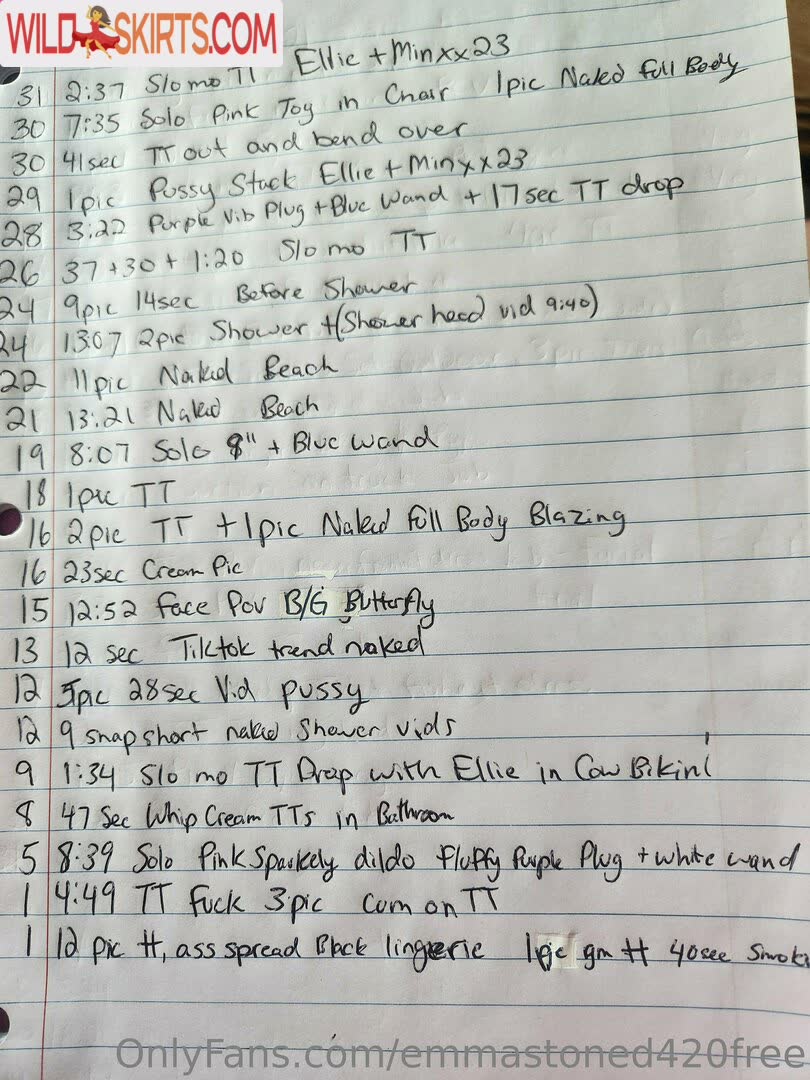 WILDSKIRTS.COM
31 2:37 Slo mo TT Ellie + Minxx23
30 7:35 Solo Pink Toy in Chair 1pic Naked full Body
30 41sec TT out and bend over
29 1pic Pussy Stack Ellie + Minxx23
28 3:22 Purple Vib Plug + Blue Wand + 17sec TT drop
26 37 + 30 + 1:20 Slo mo TT
24 9pic 14sec Before Shower
24 1307 2pic Shower + (Shower head vid 9:40)
22 11pic Naked Beach
21 13:21 Naked Beach
19 8:07 Solo 8" + Blue Wand
18 1pic TT
16 2pic TT + 1pic Naked Full Body Blazing
16 23sec Cream Pic
15 12:52 Face Pov B/G Butterfly
13 12 sec Tiktok trend naked
12 5pic 28sec Vid pussy
12 9 snap short naked Shower vids
9 1:34 Slo mo TT Drop with Ellie in Cow Bikini
8 47 Sec Whip Cream TTs in Bathroom
5 8:39 Solo Pink Sparkely dildo fluffy Purple Plug + white wand
1 4:49 TT Fuck 3pic cum on TT
1 12 pic tt, ass spread Black lingerie 1pic gm tt 40sec
OnlyFans.com/emmastoned420free